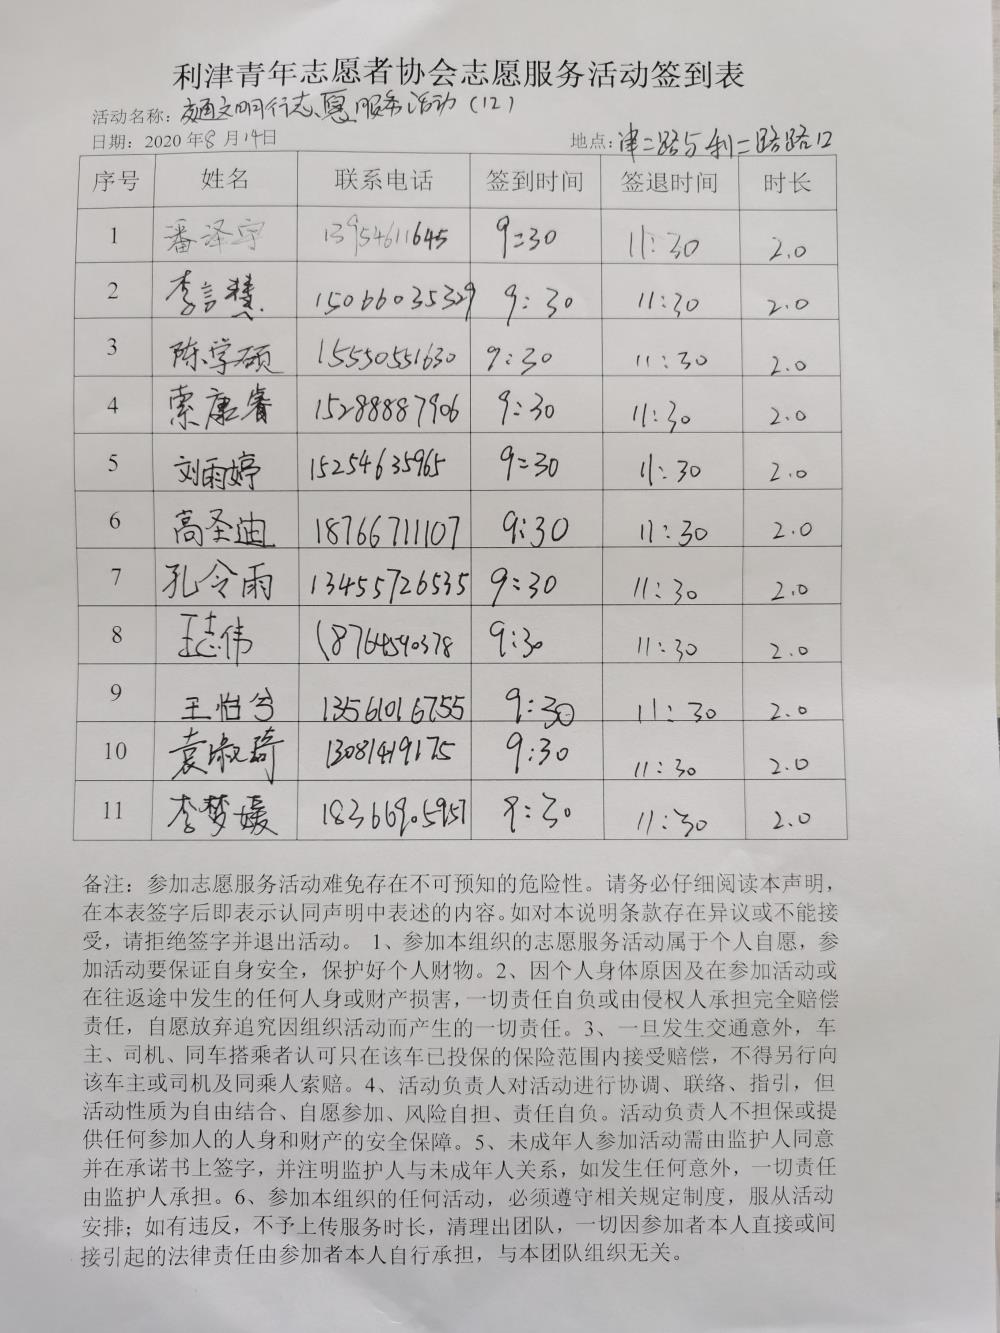 利津青年志愿者协会志愿服务活动签到表
活动名称：交通文明行志愿服务活动（12）
日期：2020年8月14日 地点：津二路与利二路路口
序号 姓名 联系电话 签到时间 签退时间 时长
1 潘泽宇 13954611645 9:30 11:30 2.0
2 李言慧 15066035329 9:30 11:30 2.0
3 陈学硕 15550551630 9:30 11:30 2.0
4 索康睿 15288887906 9:30 11:30 2.0
5 刘雨婷 15254635965 9:30 11:30 2.0
6 高圣迪 18766711107 9:30 11:30 2.0
7 孔令雨 13455726535 9:30 11:30 2.0
8 王志伟 18764540378 9:30 11:30 2.0
9 王怡兮 13561016755 9:30 11:30 2.0
10 袁淑琦 13081419175 9:30 11:30 2.0
11 李梦媛 18366905957 9:30 11:30 2.0
备注：参加志愿服务活动难免存在不可预知的危险性。请务必仔细阅读本声明，
在本表签字后即表示认同声明中表述的内容。如对本说明条款存在异议或不能接
受，请拒绝签字并退出活动。 1、参加本组织的志愿服务活动属于个人自愿，参
加活动要保证自身安全，保护好个人财物。2、因个人身体原因及在参加活动或
在往返途中发生的任何人身或财产损害，一切责任自负或由侵权人承担完全赔偿
责任，自愿放弃追究因组织活动而产生的一切责任。3、一旦发生交通意外，车
主、司机、同车搭乘者认可只在该车已投保的保险范围内接受赔偿，不得另行向
该车主或司机及同乘人索赔。4、活动负责人对活动进行协调、联络、指引，但
活动性质为自由结合、自愿参加、风险自担、责任自负。活动负责人不担保或提
供任何参加人的人身和财产的安全保障。5、未成年人参加活动需由监护人同意
并在承诺书上签字，并注明监护人与未成年人关系，如发生任何意外，一切责任
由监护人承担。6、参加本组织的任何活动，必须遵守相关规定制度，服从活动
安排；如有违反，不予上传服务时长，清理出团队，一切因参加者本人直接或间
接引起的法律责任由参加者本人自行承担，与本团队组织无关。